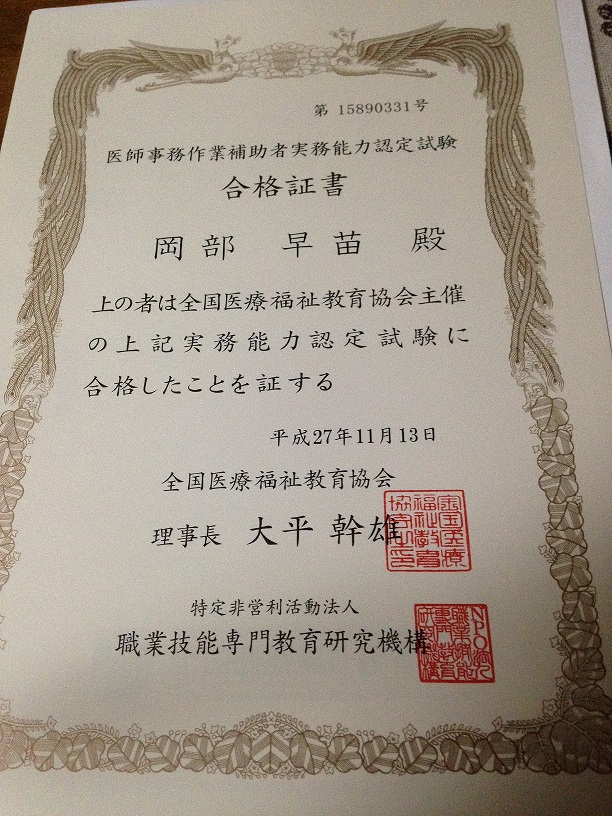 第 15890331号
医師事務作業補助者実務能力認定試験
合格証書
岡部 早苗 殿
上の者は全国医療福祉教育協会主催
の上記実務能力認定試験に
合格したことを証する
平成27年11月13日
全国医療福祉教育協会
理事長 大平 幹雄
特定非営利活動法人
職業技能専門教育研究機構